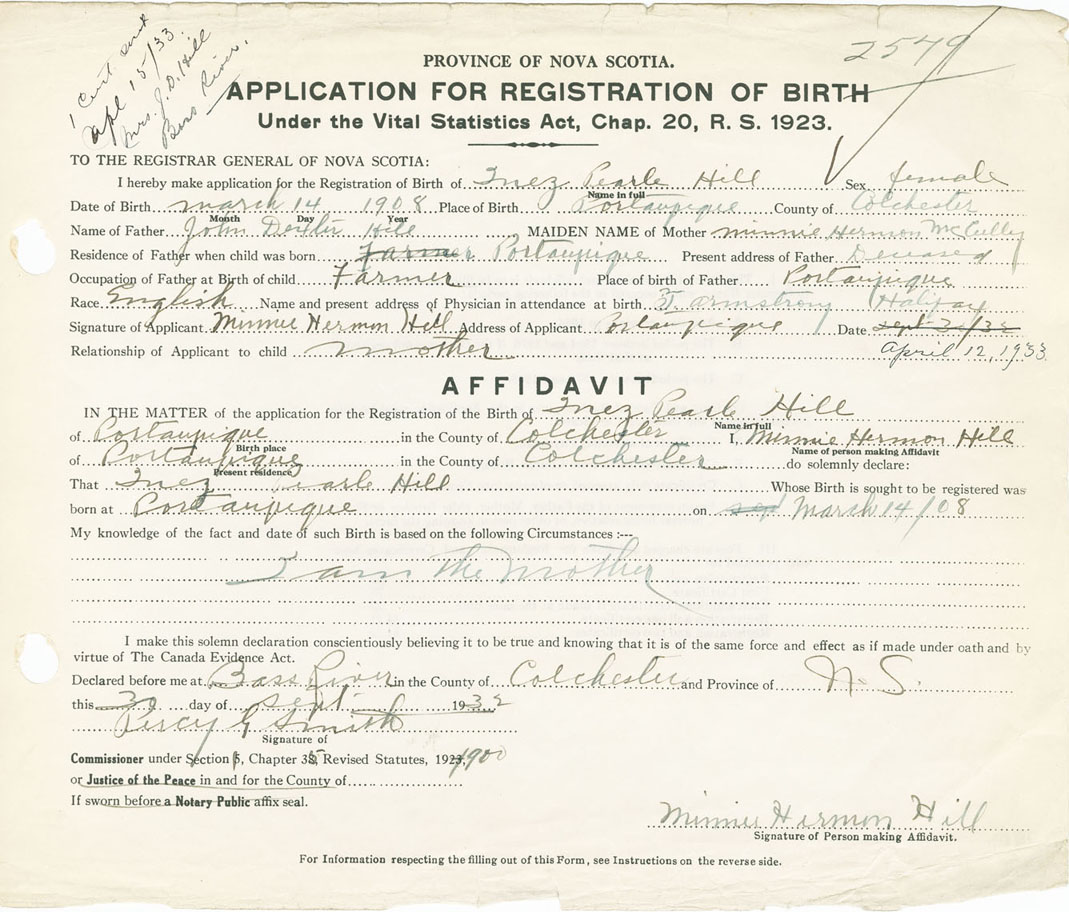 1 Cert and
Apl 15/33.
Mrs. J. D. Hill
Bass River.
2549
PROVINCE OF NOVA SCOTIA.
APPLICATION FOR REGISTRATION OF BIRTH
Under the Vital Statistics Act, Chap. 20, R. S. 1923.
TO THE REGISTRAR GENERAL OF NOVA SCOTIA:
I hereby make application for the Registration of Birth of Inez Pearle Hill Sex female
Name in full
Date of Birth March 14 1908 Place of Birth Portaupique County of Colchester
Month Day Year
Name of Father John Dexter Hill MAIDEN NAME of Mother Minnie Hermon McCully
Residence of Father when child was born Farmer Portaupique Present address of Father Deceased
Occupation of Father at Birth of child Farmer Place of birth of Father Portaupique
Race English Name and present address of Physician in attendance at birth Armstrong Halifax
Signature of Applicant Minnie Hermon Hill Address of Applicant Portaupique Date Sept 30/32
Relationship of Applicant to child mother April 12, 1933
AFFIDAVIT
IN THE MATTER of the application for the Registration of the Birth of Inez Pearle Hill
Name in full
of Portaupique in the County of Colchester I, Minnie Hermon Hill
Birth place Name of person making Affidavit
of Portaupique in the County of Colchester do solemnly declare:
Present residence
That Inez Pearle Hill Whose Birth is sought to be registered was
born at Portaupique on Sep March 14/08
My knowledge of the fact and date of such Birth is based on the following Circumstances :---
I am the Mother
I make this solemn declaration conscientiously believing it to be true and knowing that it is of the same force and effect as if made under oath and by
virtue of The Canada Evidence Act.
Declared before me at Bass River in the County of Colchester and Province of N. S.
this 30 day of Sept 1932
Percy G Smith
Signature of
Commissioner under Section 5, Chapter 35, Revised Statutes, 1923, 1900
or Justice of the Peace in and for the County of
If sworn before a Notary Public affix seal.
Minnie Hermon Hill
Signature of Person making Affidavit.
For Information respecting the filling out of this Form, see Instructions on the reverse side.